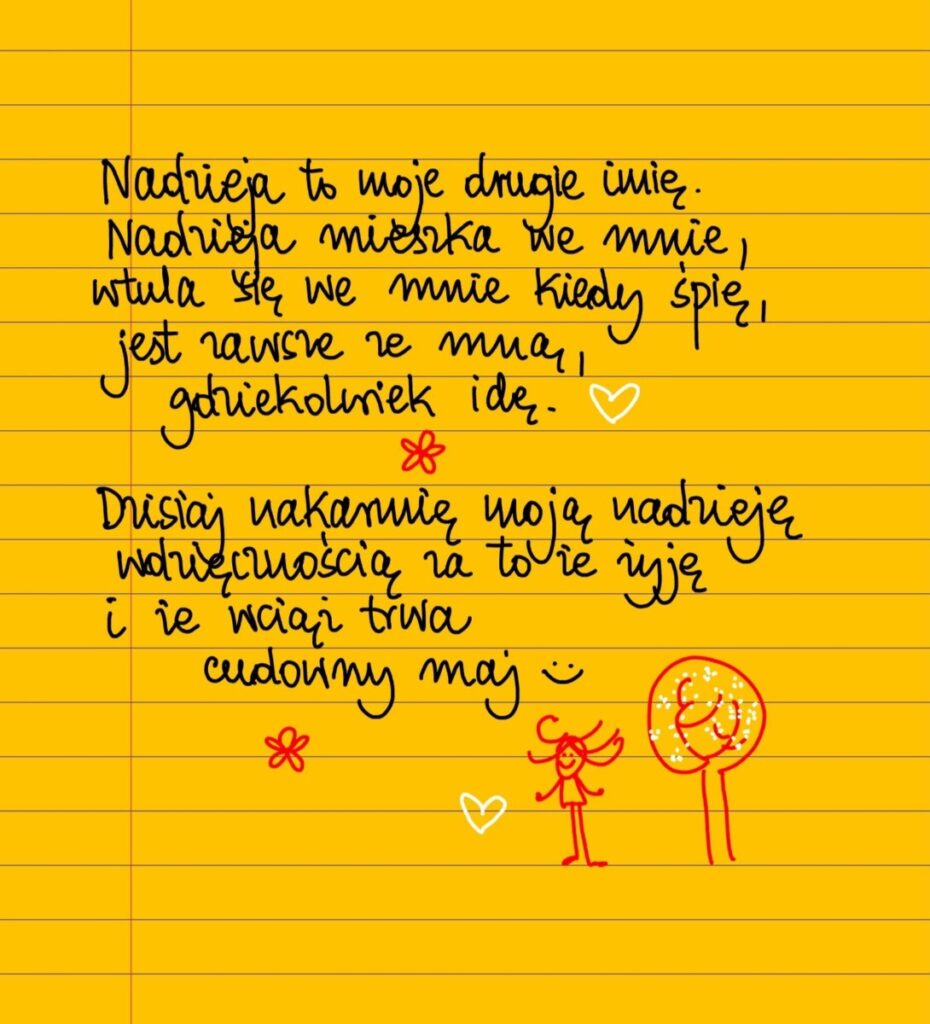 Nadzieja to moje drugie imię.
Nadzieja mieszka we mnie,
wtula się we mnie kiedy śpię,
jest zawsze ze mną,
gdziekolwiek idę.
Dzisiaj nakarmię moją nadzieję
wdzięcznością za to że żyję
i że wciąż trwa
cudowny maj :)